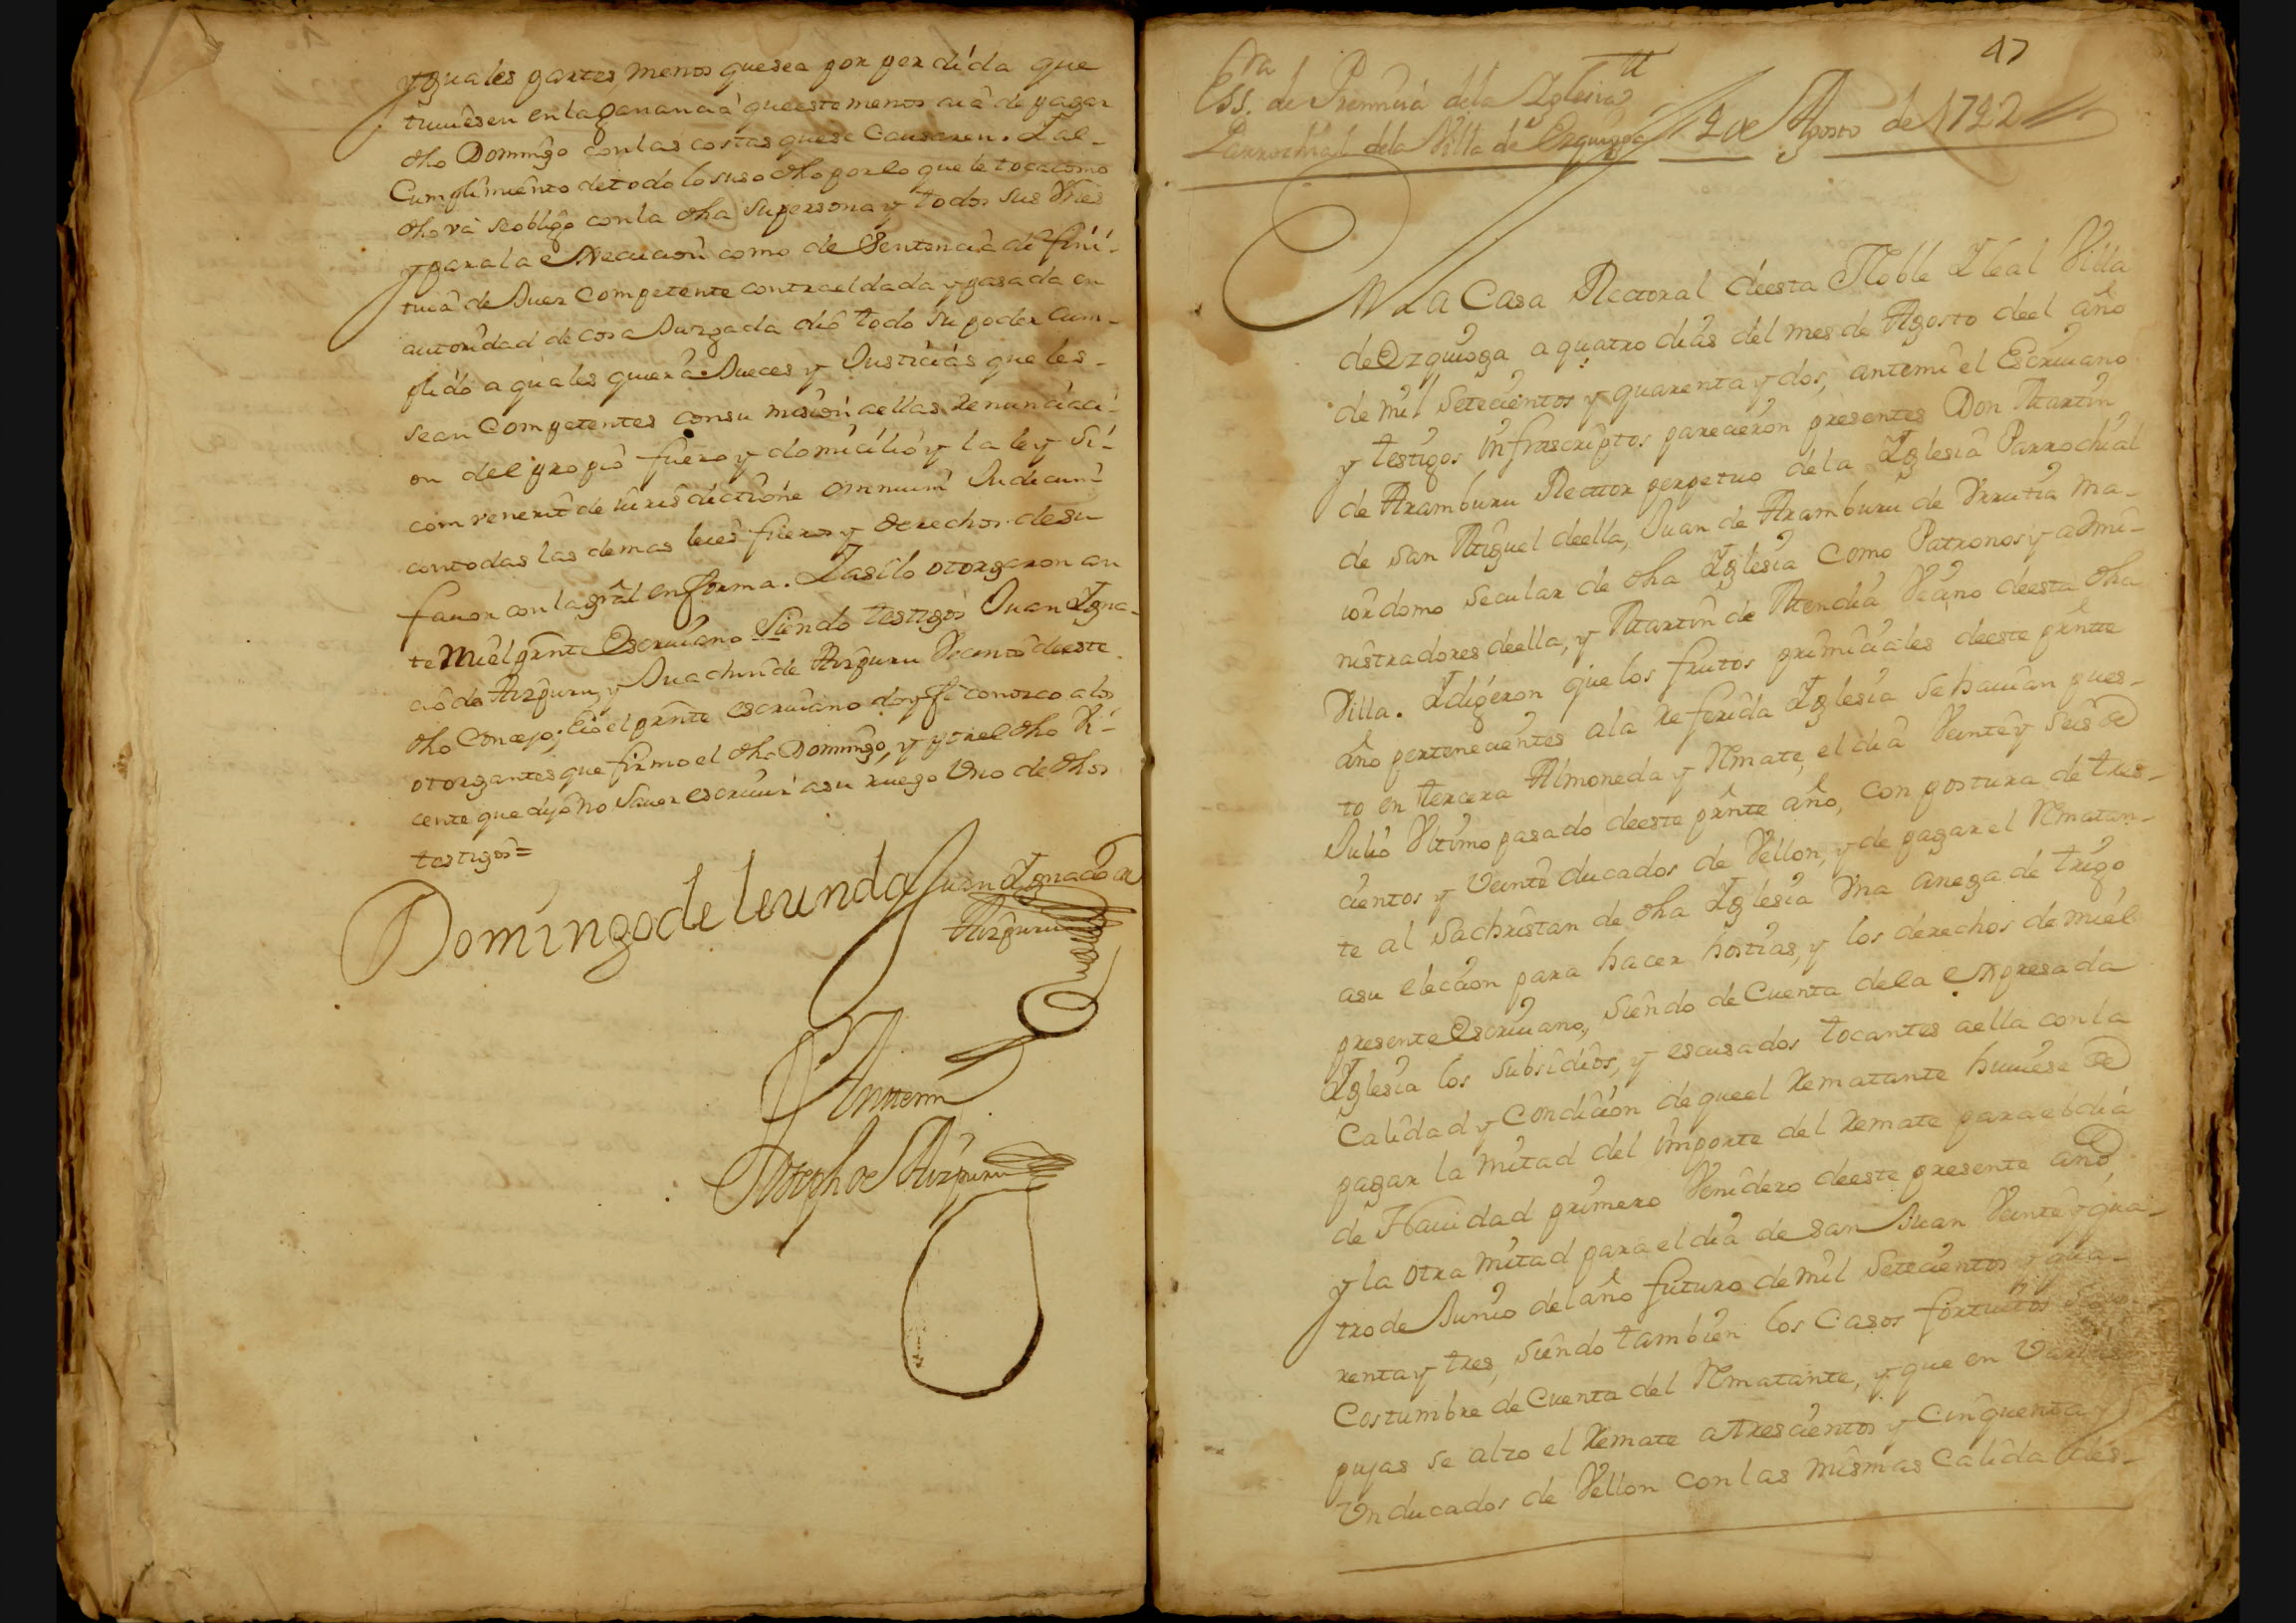 yguales partes, menos que sea por perdida que
tuuiesen en la ganancia que esta menos aia de pagar
dho Domingo con las costas que se causaren. Y al
Cumplimiento de todo lo suso dho por lo que le toca como
dho va se obligo con la dha su persona y todos sus Vnes
y para la execucion como de Sentencia difini-
tiua de Juez Competente contra el dada y pasada en
autoridad de cosa Juzgada dio todo su poder Cum-
plido a quales quiera Jueces y Justicias que les
sean Competentes con su mision a ellas Renunciaci-
on del propio fuero y domicilio y la ley Si
comvenerit de iurisdictione omnium Judicum
con todas las demas leies fueros y derechos de su
fauor con la gral en forma. Y asi lo otorgaron an
te Mi el prnte Escriuano Siendo testigos Juan Igna-
cio de Aizpuru, y Juachin de Aizpuru Vecinos de este
dho Concejo; E io el prnte escriuano doy fe conozco a los
otorgantes que firmo el dho Domingo, y por el dho Vi-
cente que dijo no sauer escriuir a su ruego Vno de dhos
testigos=
Domingo de leunda Juan Ygnacio de
Aizpuru
Antemi
Joseph de Aizpuru
47
Essra de Primicia de la Iglesia
Parrochial de la Villa de Ezquioga // 4 de Agosto de 1742 //
En la Casa Rectoral de esta Noble Y leal Villa
de Ezquioga a quatro dias del mes de Agosto de el año
de mil Setecientos y quarenta y dos, ante mi el Escriuano
y testigos infrascriptos parecieron presentes Don Martin
de Aramburu Rector perpetuo de la Yglesia Parrochial
de San Miguel de ella, Juan de Aramburu de Vrrutia Ma-
iordomo Secular de dha Yglesia Como Patronos y admi-
nistradores de ella, y Martin de Mendia Vecino de esta dha
Villa. Y digeron que los frutos primiciales de este prnte
año pertenecientes a la referida Yglesia se hauian pues-
to en tercera Almoneda y Rmate, el dia Veinte y Seis de
Julio Vltimo pasado de este prnte año, con postura de tres-
cientos y Veinte ducados de Vellon, y de pagar el Rmatan-
te al Sachristan de dha Yglesia Vna anega de trigo
a su eleccion para hacer hostias, y los derechos de mi el
presente Escriuano, Siendo de Cuenta de la expresada
Yglesia los subsidios, y escusados tocantes a ella con la
Calidad y Condicion de que el Rematante huuiese de
pagar la mitad del importe del Remate para el dia
de Nauidad primero Venidero de este presente año,
y la otra mitad para el dia de San Juan Veinte y qua-
tro de Junio del año futuro de mil Setecientos y qua-
renta y tres, siendo tambien los Casos fortuitos
Costumbre de Cuenta del Rmatante, y que en Varias
pujas se alzo el Remate a trescientos y Cinquenta y
Vn ducados de Vellon con las mismas Calidades-